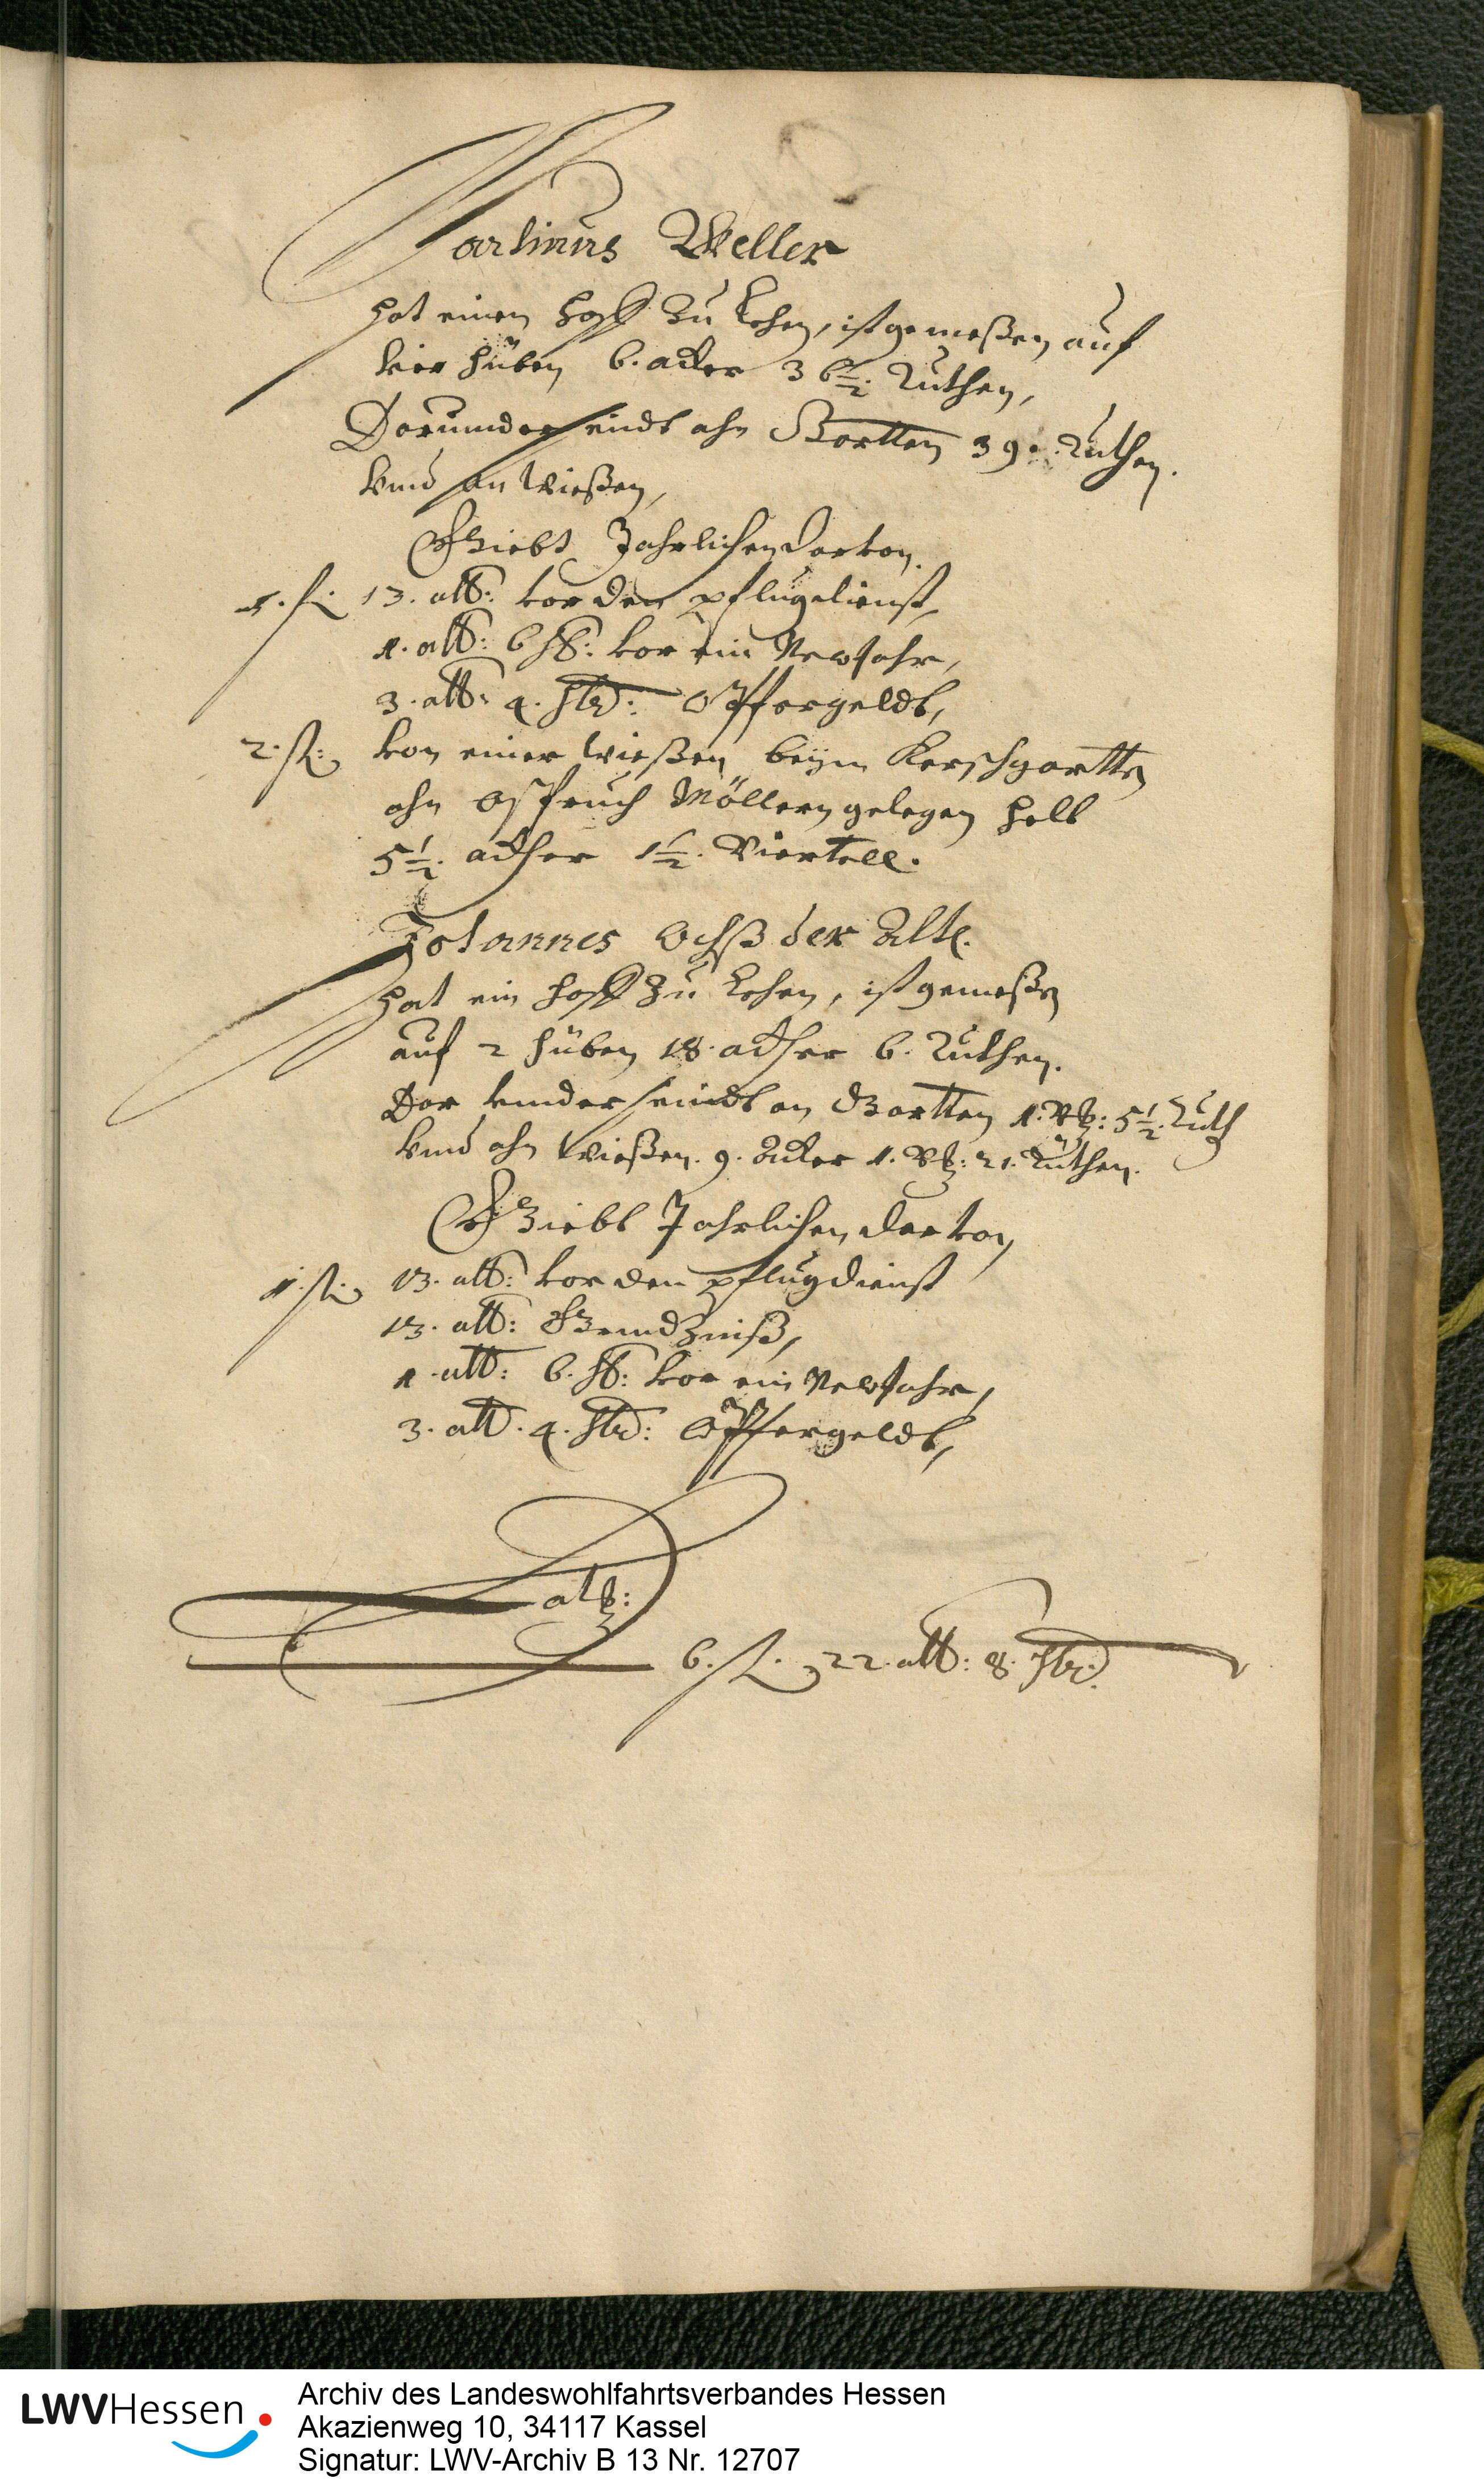 Martinus Weller
hat einen hoff Zu Lehen, ist gemeßen auf
vier huben 6. acker 36 1/2. Ruthen,
Darunder seindt ahn Gartten 39. Ruthen.
vnd an Wießen,
Giebt Jahrlichen darvon.
1. fl. 13. alb: vor den pflugdienst,
1. alb: 6 hlr: vor ein NewJahr,
3. alb: 4. hlr: Opffergeldt,
2. fl: von einer Wießen beym Kerschgartten
ahn Möllern gelegen helt
5 1/2. acker 1 1/2. Viertell.
Johannes Ochß der Alte.
hat ein hoff Zu Lehen, ist gemeßen
auf 2 huben 18. acker 6. Ruthen.
Dar vnder seindt an Gartten 1. Vtl: 5 1/2. Ruth
vnd ahn Wießen. 9. Acker 1. Vtl: 21. Ruthen.
Giebt Jahrlichen darvon
1. fl. 13. alb: vor den pflugdienst
13. alb: Grundzinß,
1. alb: 6. hlr: vor ein NewJahr,
3. alb. 4. hlr: Opffergeldt,
Latg:
6. fl. 22. alb: 8. hlr.
LWVHessen
Archiv des Landeswohlfahrtsverbandes Hessen
Akazienweg 10, 34117 Kassel
Signatur: LWV-Archiv B 13 Nr. 12707